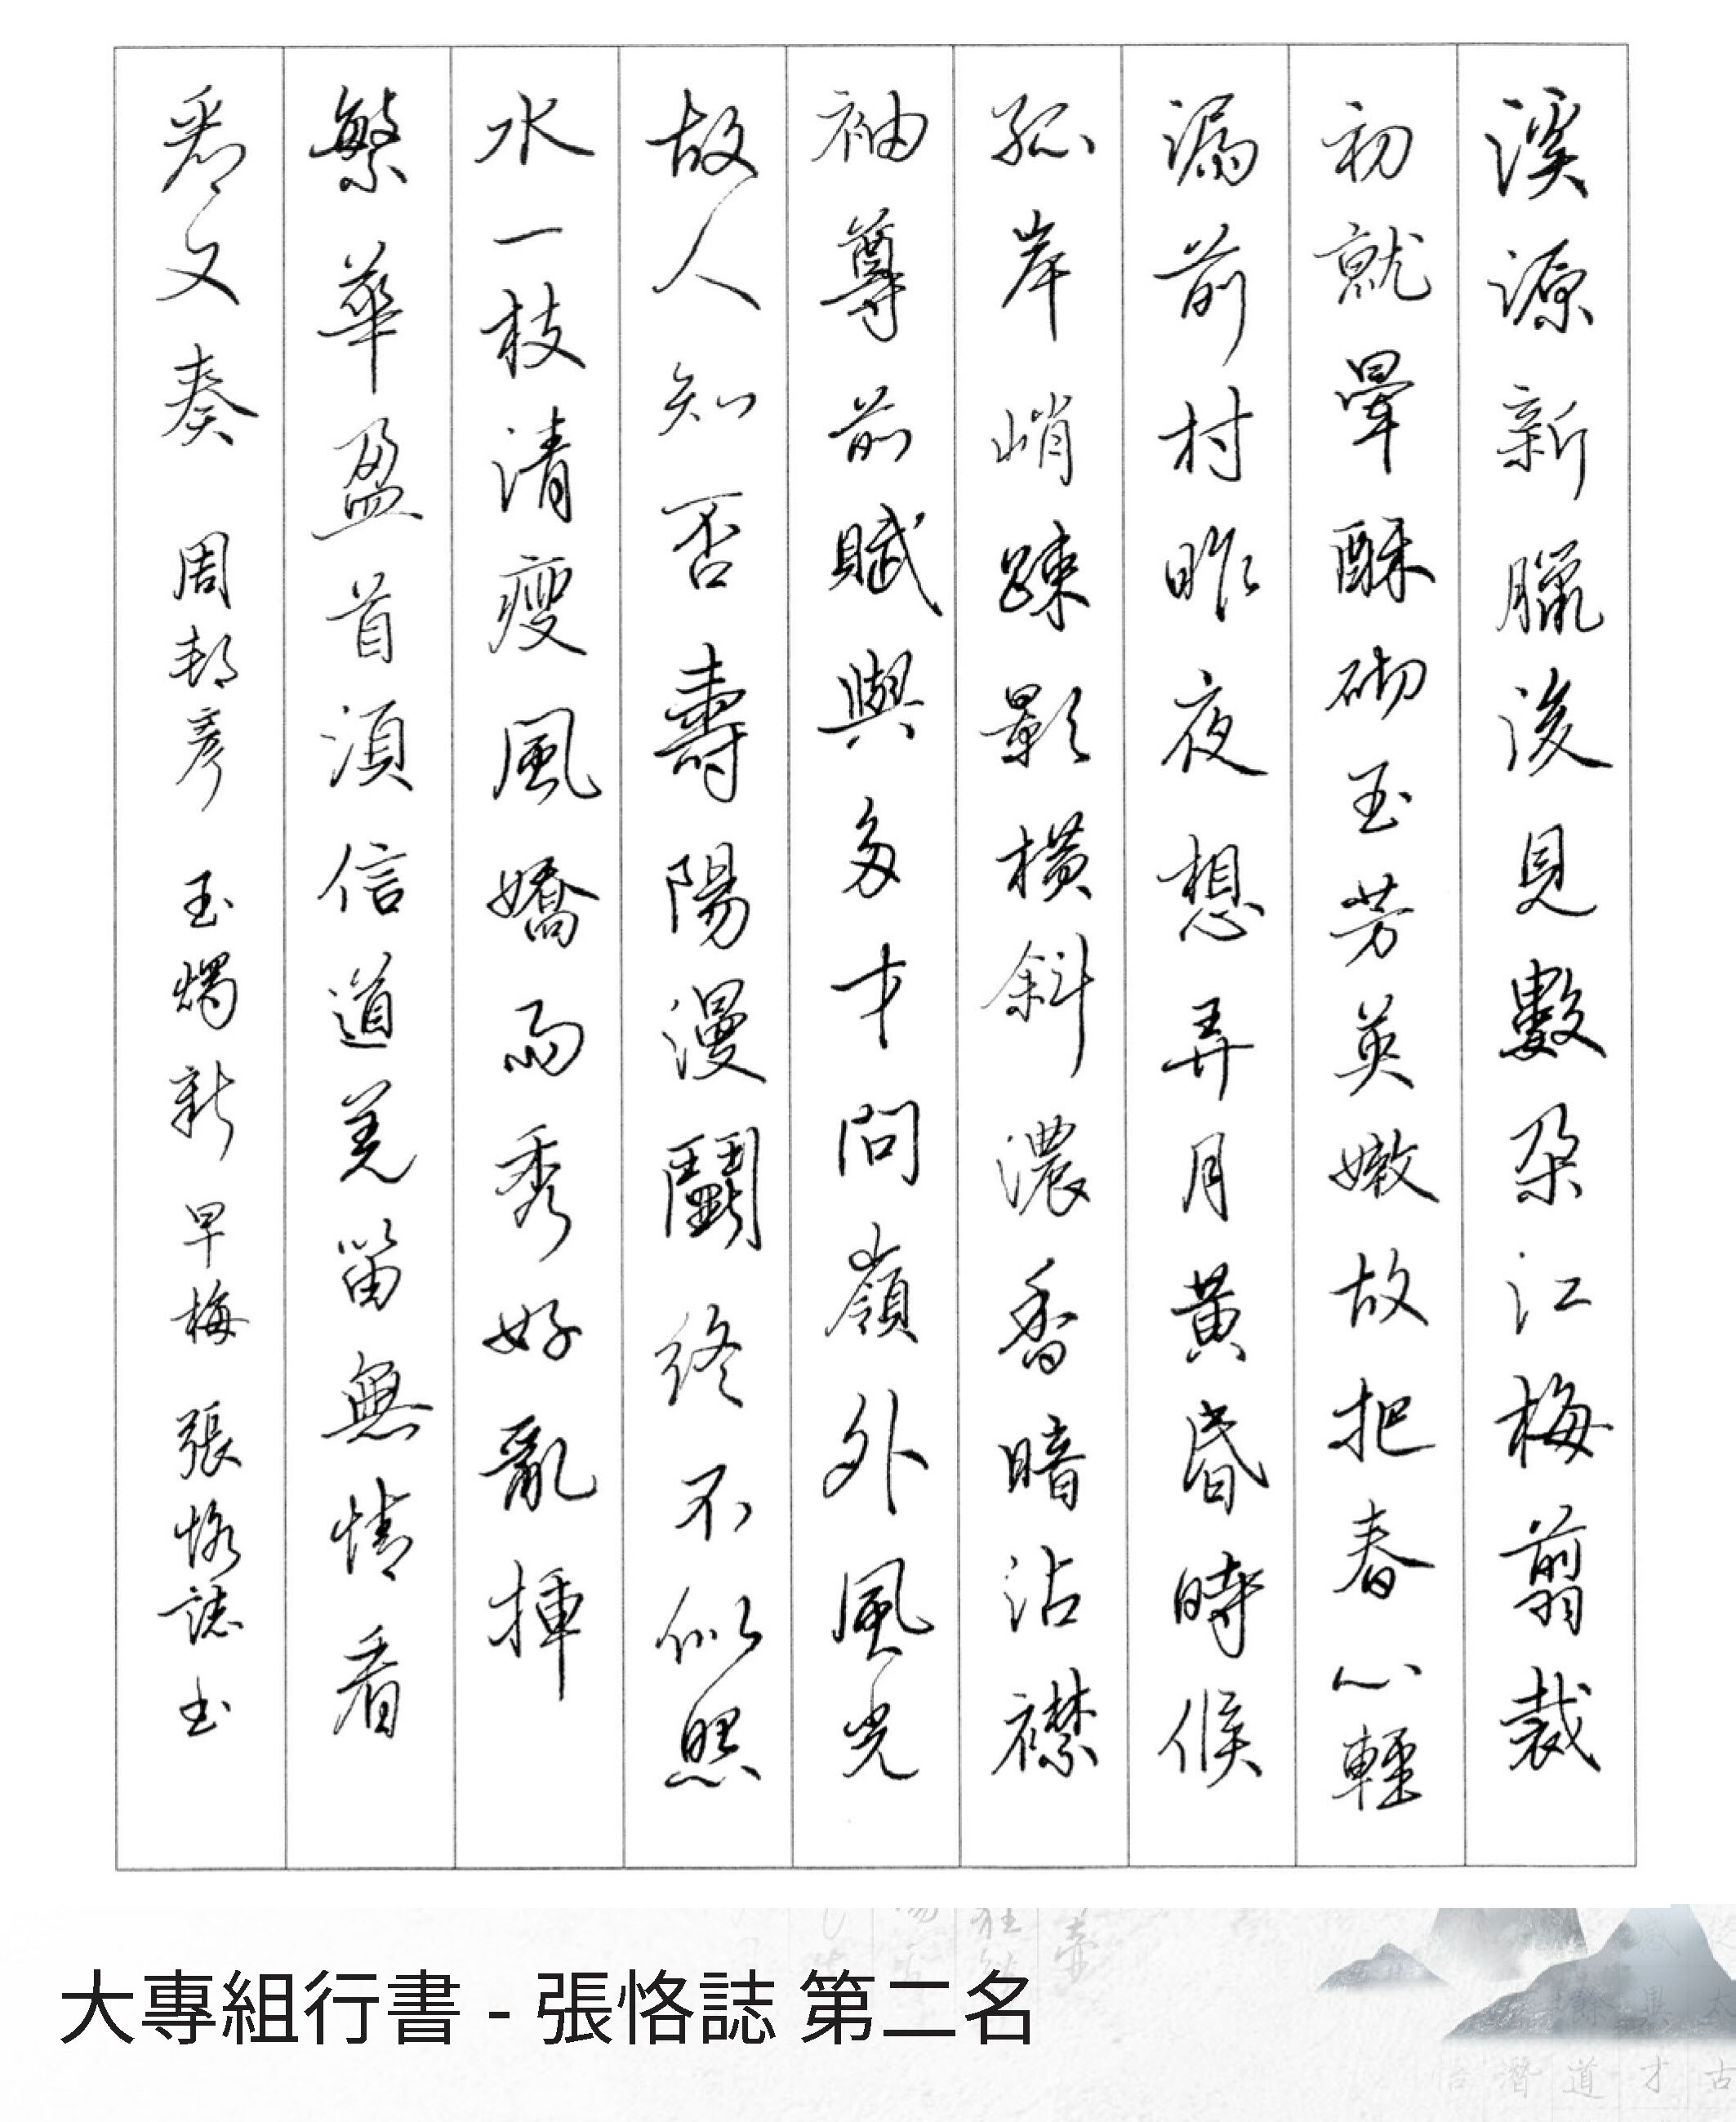 溪源新臘後見數朵江梅翦裁
初就暈酥砌玉芳英嫩故把春心輕
漏前村昨夜想弄月黃昏時候
孤岸峭踈影橫斜濃香暗沾襟
袖尊前賦與多才問嶺外風光
故人知否壽陽漫鬭終不似照
水一枝清瘦風嬌雨秀好亂插
繁華盈首須信道羌笛無情看
看又奏 周邦彥 玉燭新 早梅 張恪誌書
大專組行書 - 張恪誌 第二名